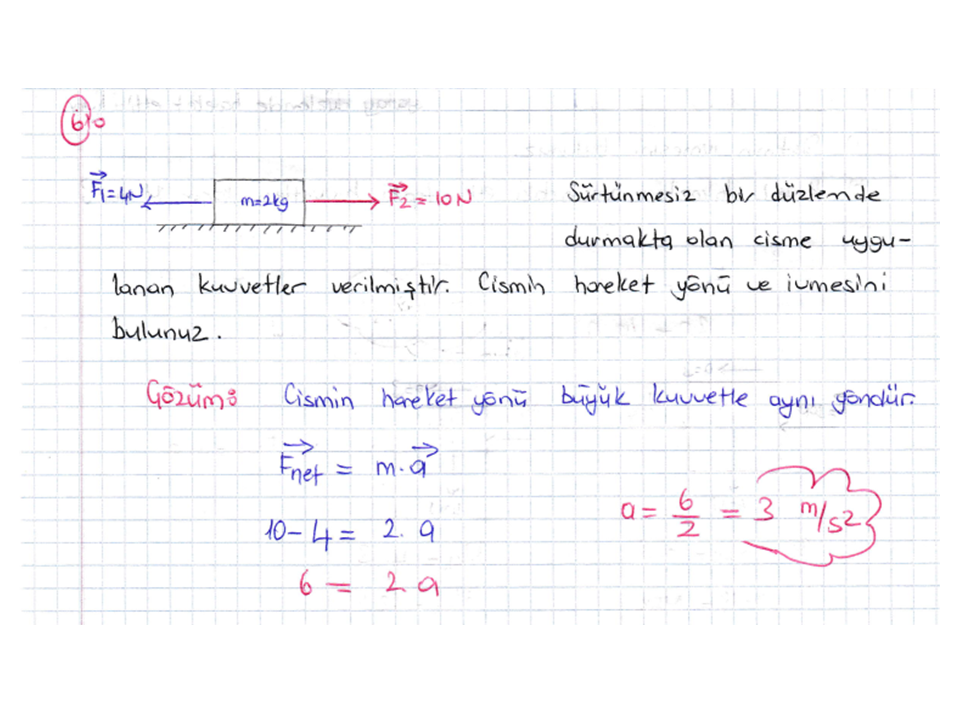 6)
F₁=4N m=2kg F₂=10N Sürtünmesiz bir düzlemde
durmakta olan cisme uygu-
lanan kuvvetler verilmiştir. Cismin hareket yönü ve ivmesini
bulunuz.
Çözüm: Cismin hareket yönü büyük kuvvetle aynı yöndür.
Fnet = m.a
10-4 = 2. a
a = 6/2 = 3 m/s2
6 = 2.a